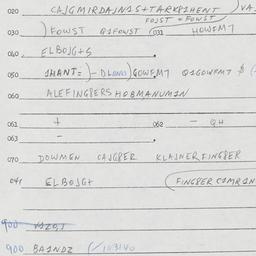 020 CAJGMIRDAJN1S+TARKP1HENT ) VA
FOJST = FOWST
030 ) FOWST Q1FOWST (031 HOWFM7
040 ELBOJG+S
050 1HANT= )- DLAWO) GOWFM7 Q1GOWFM7 $
060 ALEFINGBERS HOBMANUM1N
061 + 062 - QH
063 -
070 DOWMEN CAJGBER KLAJNERFINGBER
041 ELBOJG+ (FINGBER C1MR1N
900 BA1NDZ